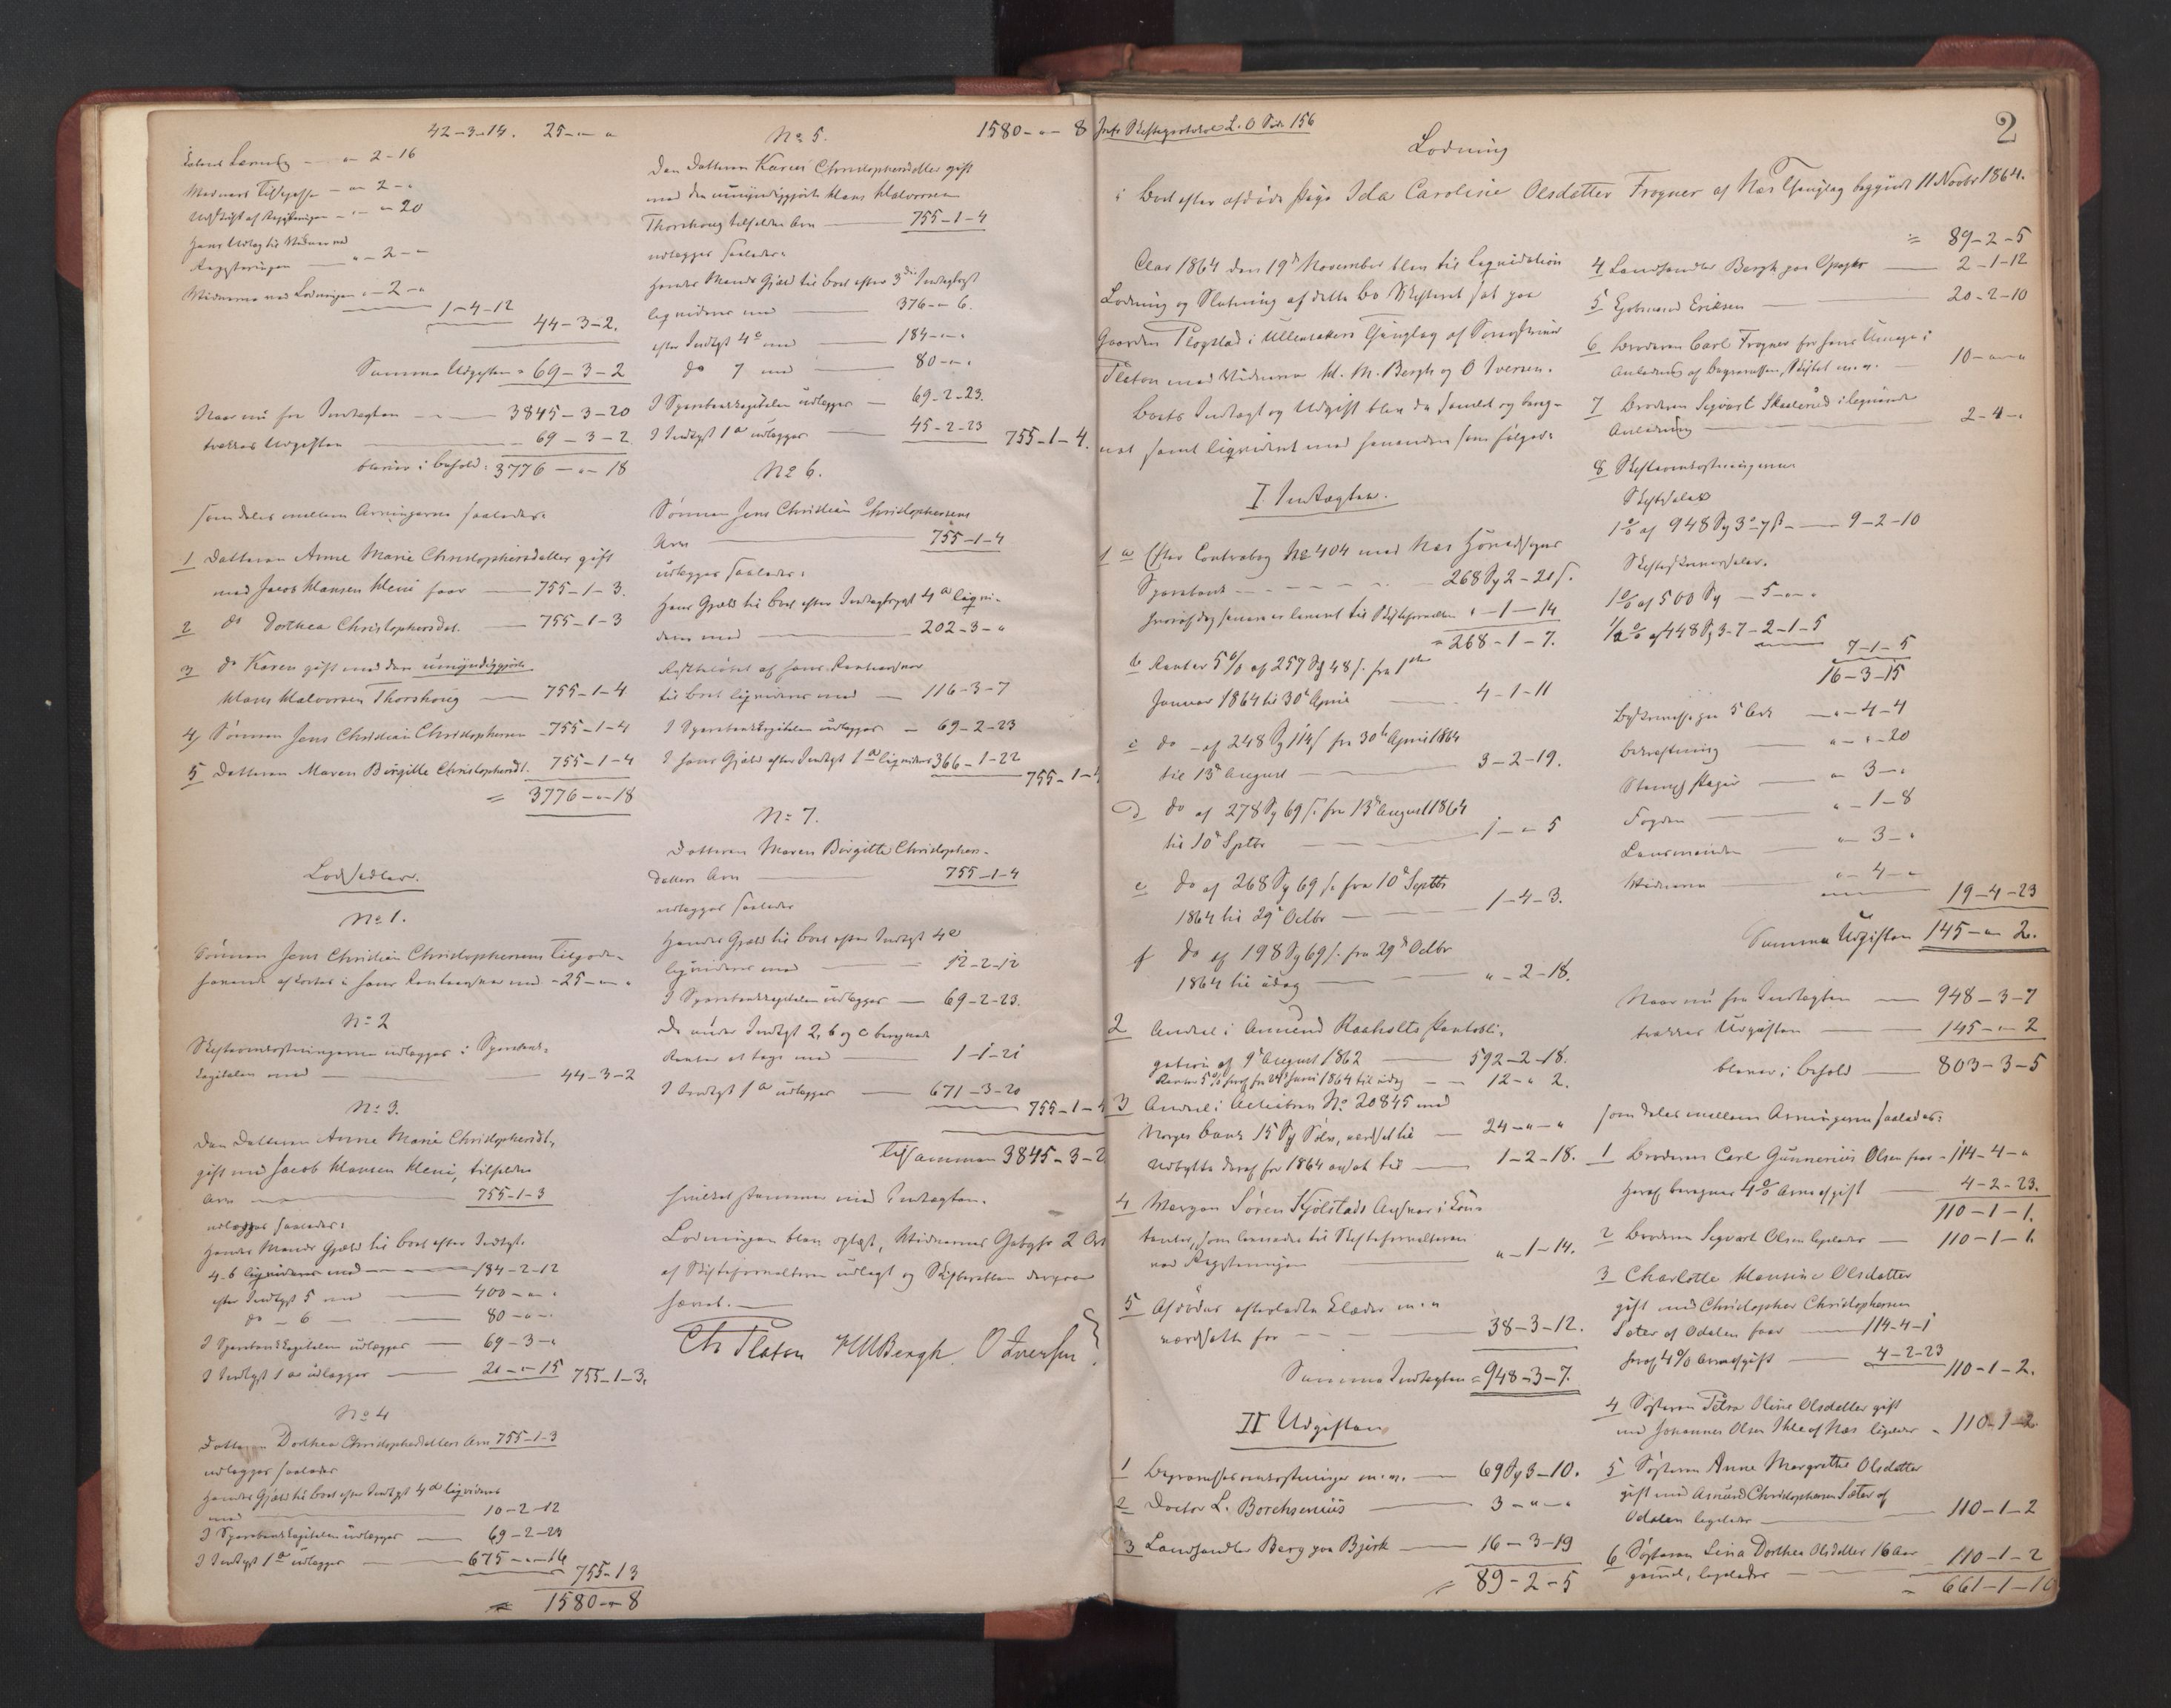 42-3-14. 25-"-"
Lensm. — " 2-16
— " 2 - "
— " - " 20
Hans Udlæg til Vidner ved
Registeringen — " - 2 - "
Vidnerne ved Lodningen " - 2 - "
1-4-12
44-3-2.
Summa Udgiften = 69-3-2
Naar nu fra Indtægten — 3845-3-20
trækkes Udgiften — 69-3-2
bliver i Behold: 3776-"-18
som deles mellem Arvingerne saaledes:
1 Datteren Anne Marie Christophersdatter gift
med Jacob Hansen Meni faar — 755-1-3.
2 do Dorthea Christophersdat. — 755-1-3
3 do Karen gift med den umyndiggjorte
Hans Halvorsen Thorshoug — 755-1-4
4, Sønnen Jens Christian Christophersen - 755-1-4
5 Datteren Maren Birgitte Christophersdt. 755-1-4
= 3776-"-18
Lodsedler.
No 1.
Sønnen Jens Christian Christophersens Tilgode-
havende afkortes i hans Rentesvar med - 25-"-"
No 2
Skifteomkostningerne udlægges i Sparebank-
kapitalen med — 44-3-2
No 3.
Den Datteren Anne Marie Christophersdt.,
gift med Jacob Hansen Meni, tilfaldne
Arv — 755-1-3
udlægges saaledes:
Hendes Mands Gjæld til Boet efter Indtgt.
4-b liqvideres med — 184-2-12
efter Indtgt 5 med — 400-"-"
do - 6 — 80-"-"
I Sparebankkapitalen udlægges — 69-3-"
I Indtgt 1 a udlægges — 21-"-15 755-1-3.
No 4
Datteren Dorthea Christophersdatters Arv 755-1-3
udlægges saaledes
Hendes Gjæld til Boet efter Indtgt 4 d liqvideres
med — 10-2-12
I Sparebankkapitalen udlægges — 69-2-23
I Indtgt 1 a udlægges — 675-"-16
755-1-3
= 1580-"-8
No 5. 1580-"-8
Den Datteren Karen Christophersdatter gift
med den umyndiggjorte Hans Halvorsen
Thorshoug tilfaldne Arv — 755-1-4
udlægges saaledes:
Hendes Mands Gjæld til Boet efter 3die Indtægtspost
liqvideres med — 376-"-6.
efter Indtgt 4 c med — 184-"-"
do 7 med — 80-"-"
I Sparebankkapitalen udlægges — 69-2-23.
I Indtgt 1 a udlægges — 45-2-23 755-1-4.
No 6.
Sønnen Jens Christian Christophersens
Arv — 755-1-4
udlægges saaledes:
Hans Gjæld til Boet efter Indtægtspost 4 a liqvi-
deres med — 202-3-"
Restbeløbet af hans Rentesvar
til Boet liqvideres med — 116-3-7
I Sparebankkapitalen udlægges — 69-2-23
I hans Gjæld efter Indtgt 1 a liqvideres 366-1-22
755-1-4
No 7.
Datteren Maren Birgitte Christophers-
datters Arv — 755-1-4
udlægges saaledes
Hendes Gjæld til Boet efter Indtgt 4 e
liqvideres med — 12-2-12
I Sparebankkapitalen udlægges — 69-2-23.
De under Indtgt 2, b og c beregnede
Renter at tage med — 1-1-21
I Indtgt 1 a udlægges — 671-3-20
755-1-4
Tilsammen 3845-3-2
hvilket stemmer med Indtægten.
Lodningen blev oplæst, Vidnernes Gebyhr 2 Ort
af Skifteforvalteren udlagt og Skifteretten derpaa
hævet. —
Chr Platou H M Bergh. O Iversen
Jnfr Skifteprotokol L. O Side 156
2
Lodning
i Boet efter afdøde Pige Ida Caroline Olsdatter Frogner af Næs Thinglag begyndt 11 Novbr 1864.
Aar 1864 den 19de November blev til Liqvidation
Lodning og Slutning af dette Bo Skifteret sat paa
Gaarden Flogstad i Ullensakers Thinglag af Sorenskriver
Platou med Vidnerne H. M. Bergh og O Iversen.
Boets Indtægt og Udgift blev da samlet og bereg-
net samt liqvideret med hinanden som følger:
I. Indtægten.
1 a Efter Contrabog No 404 med Næs Hovedsogns
Sparebank — 268 Sp 2-21 s.
hvoraf dog senere er leveret til Skifteforvalteren " - 1 - 14
= 268-1-7.
b Renter 5% af 257 Sp 48 s. fra 1ste
Januar 1864 til 30te April — 4-1-11
c do - af 248 Sp 114 s fra 30te April 1864
til 13de August — 3-2-19.
d do af 278 Sp 69 s. fra 13de August 1864
til 10de Sptbr — 1-"-5
e do af 268 Sp 69 s. fra 10de Septbr
1864 til 29de Octbr — 1-4-3.
f do af 198 Sp 69 s. fra 29de Octbr
1864 til idag — "-2-18.
2 Andeel i Amund Raaholts Pantobli-
gation af 9de August 1862 — 592-2-18.
Renter 5% heraf fra 24de Juni 1864 til idag — 12-"-2.
3 Andeel i Actiebrev No 20845 med
Norges Bank 15 Sp Sølv, værdsat til — 24-"-"
Udbytte deraf for 1864 ansat til — 1-2-18.
4 Værgen Søren Kjølstads Ansvar i Con-
tanter, som leveredes til Skifteforvalteren
ved Registeringen — "-1-14.
5 Afdødes efterladte Klæder m. v
værdsatte for — 38-3-12.
Summa Indtægten = 948-3-7.
II Udgiften
1 Begravelsesomkostninger m. m. — 69 Sp 3-10.
2 Doctor L. Borchsenius — 3-"-"
3 Landhandler Berg paa Bjørk — 16-3-19
= 89-2-5
= 89-2-5
4 Landhandler Bergh paa — 2-1-12
5 Gulmund Eriksen — 20-2-10
6 Broderen Carl Frogner for hans Umage i
Anledning af Begravelsen, Skiftet m. v. — 10-"-"
7 Broderen Sigvart Skaderud i lignende
Anledning — 2-4-"
8 Skifteomkostningerne
Skiftedeler
1% af 948 Sp 3 o 7 s — 9-2-10
Skifteskriversaler.
1% af 500 Sp — 5-"-"
1/2% af 448 Sp 3-7 - 2-1-5
7-1-5
16-3-15
5 Ark — "-4-4
Bekræftning — "-"-20
Stempl. Papir — "-3-"
Fogden — "-1-8
Lensmanden — "-3-"
Vidnerne — "-4-"
19-4-23
Summa Udgiften 145-"-2.
Naar nu fra Indtægten — 948-3-7
trækkes Udgiften — 145-"-2
bliver i Behold — 803-3-5
som deles mellem Arvingerne saaledes:
1 Broderen Carl Gunnerius Olsen faar - 114-4-"
heraf beregnes 4% Arveafgift — 4-2-23.
110-1-1.
2 Broderen Sigvart Olsen ligeledes — 110-1-1.
3 Charlotte Hansine Olsdatter
gift med Christopher Christophersen
Sæter af Odalen faar — 114-4-1
heraf 4% Arveafgift — 4-2-23
110-1-2.
4 Søsteren Petra Oline Olsdatter gift
med Johannes Olsen Ihle af Næs ligeledes - 110-1-2
5 Søsteren Anne Margrethe Olsdatter
gift med Amund Christophersen Sæter af
Odalen ligeledes — 110-1-2
6 Søsteren Lina Dorthea Olsdatter 16 Aar
gammel, ligeledes — 110-1-2
= 661-1-10